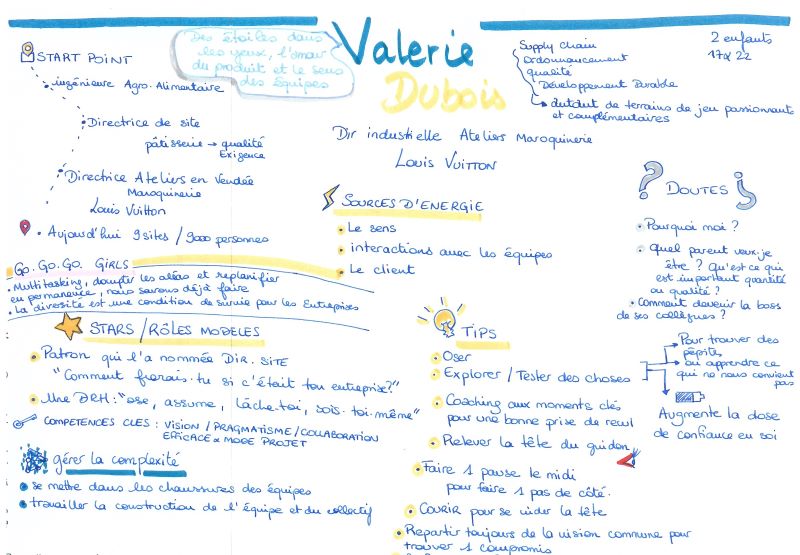 Des étoiles dans
les yeux, l'amour
du produit et le sens
des équipes
Valerie
Dubois
Dir industrielle Ateliers Maroquinerie
Louis Vuitton
Supply Chain
Ordonnancement
qualité
Développement Durable
autant de terrains de jeu passionnants
et complémentaires
2 enfants
17 & 22
START POINT
ingénieure Agro-Alimentaire
Directrice de site
pâtisserie → qualité
Exigence
Directrice Ateliers en Vendée
Maroquinerie
Louis Vuitton
Aujourd'hui 9 sites / 9000 personnes
GO. GO. GO. GIRLS
Multitasking, dompter les aléas et replanifier
en permanence, nous savons déjà faire
La diversité est une condition de survie pour les Entreprises
SOURCES D'ENERGIE
Le sens
interactions avec les équipes
Le client
? DOUTES ?
Pourquoi moi ?
quel parent veux-je
être ? Qu'est ce qui
est important quantité
ou qualité ?
Comment devenir la boss
de ses collègues ?
STARS / RÔLES MODELES
Patron qui l'a nommée DIR. SITE
"Comment ferais-tu si c'était ton entreprise?"
Une DRH : "ose, assume, lâche-toi, sois toi-même"
COMPETENCES CLES : VISION / PRAGMATISME / COLLABORATION
EFFICACE & MODE PROJET
gérer la complexité
se mettre dans les chaussures des équipes
travailler la construction de l'équipe et du collectif
TIPS
Oser
Explorer / Tester des choses
Pour trouver des
pépites
ou apprendre ce
qui ne nous convient
pas
Coaching aux moments clés
pour une bonne prise de recul
Augmente la dose
de confiance en soi
Relever la tête du guidon
Faire 1 pause le midi
pour faire 1 pas de côté.
COURIR pour se vider la tête
Repartir toujours de la vision commune pour
trouver 1 compromis